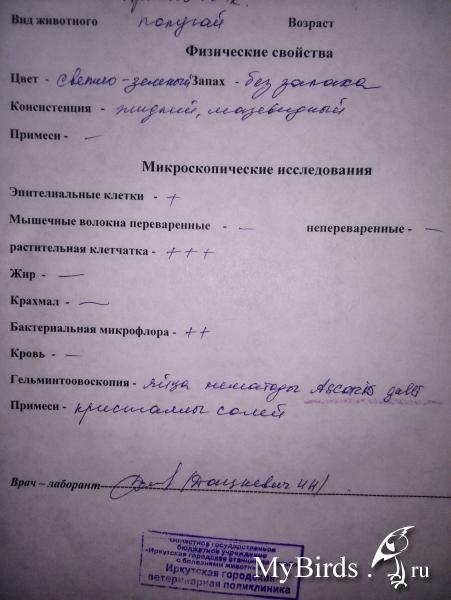 Вид животного попугай Возраст
Физические свойства
Цвет - светло-зеленый Запах - без запаха
Консистенция - жидкий, мазевидный
Примеси - —
Микроскопические исследования
Эпителиальные клетки - +
Мышечные волокна переваренные - — непереваренные - —
растительная клетчатка - +++
Жир - —
Крахмал - —
Бактериальная микрофлора - ++
Кровь - —
Гельминтоовоскопия - яйца нематоды Ascaris galli
Примеси - кристаллы солей
Врач – лаборант
Областное государственное
бюджетное учреждение
«Иркутская городская станция
с болезнями животных
Иркутская городская
ветеринарная поликлиника
MyBirds.ru